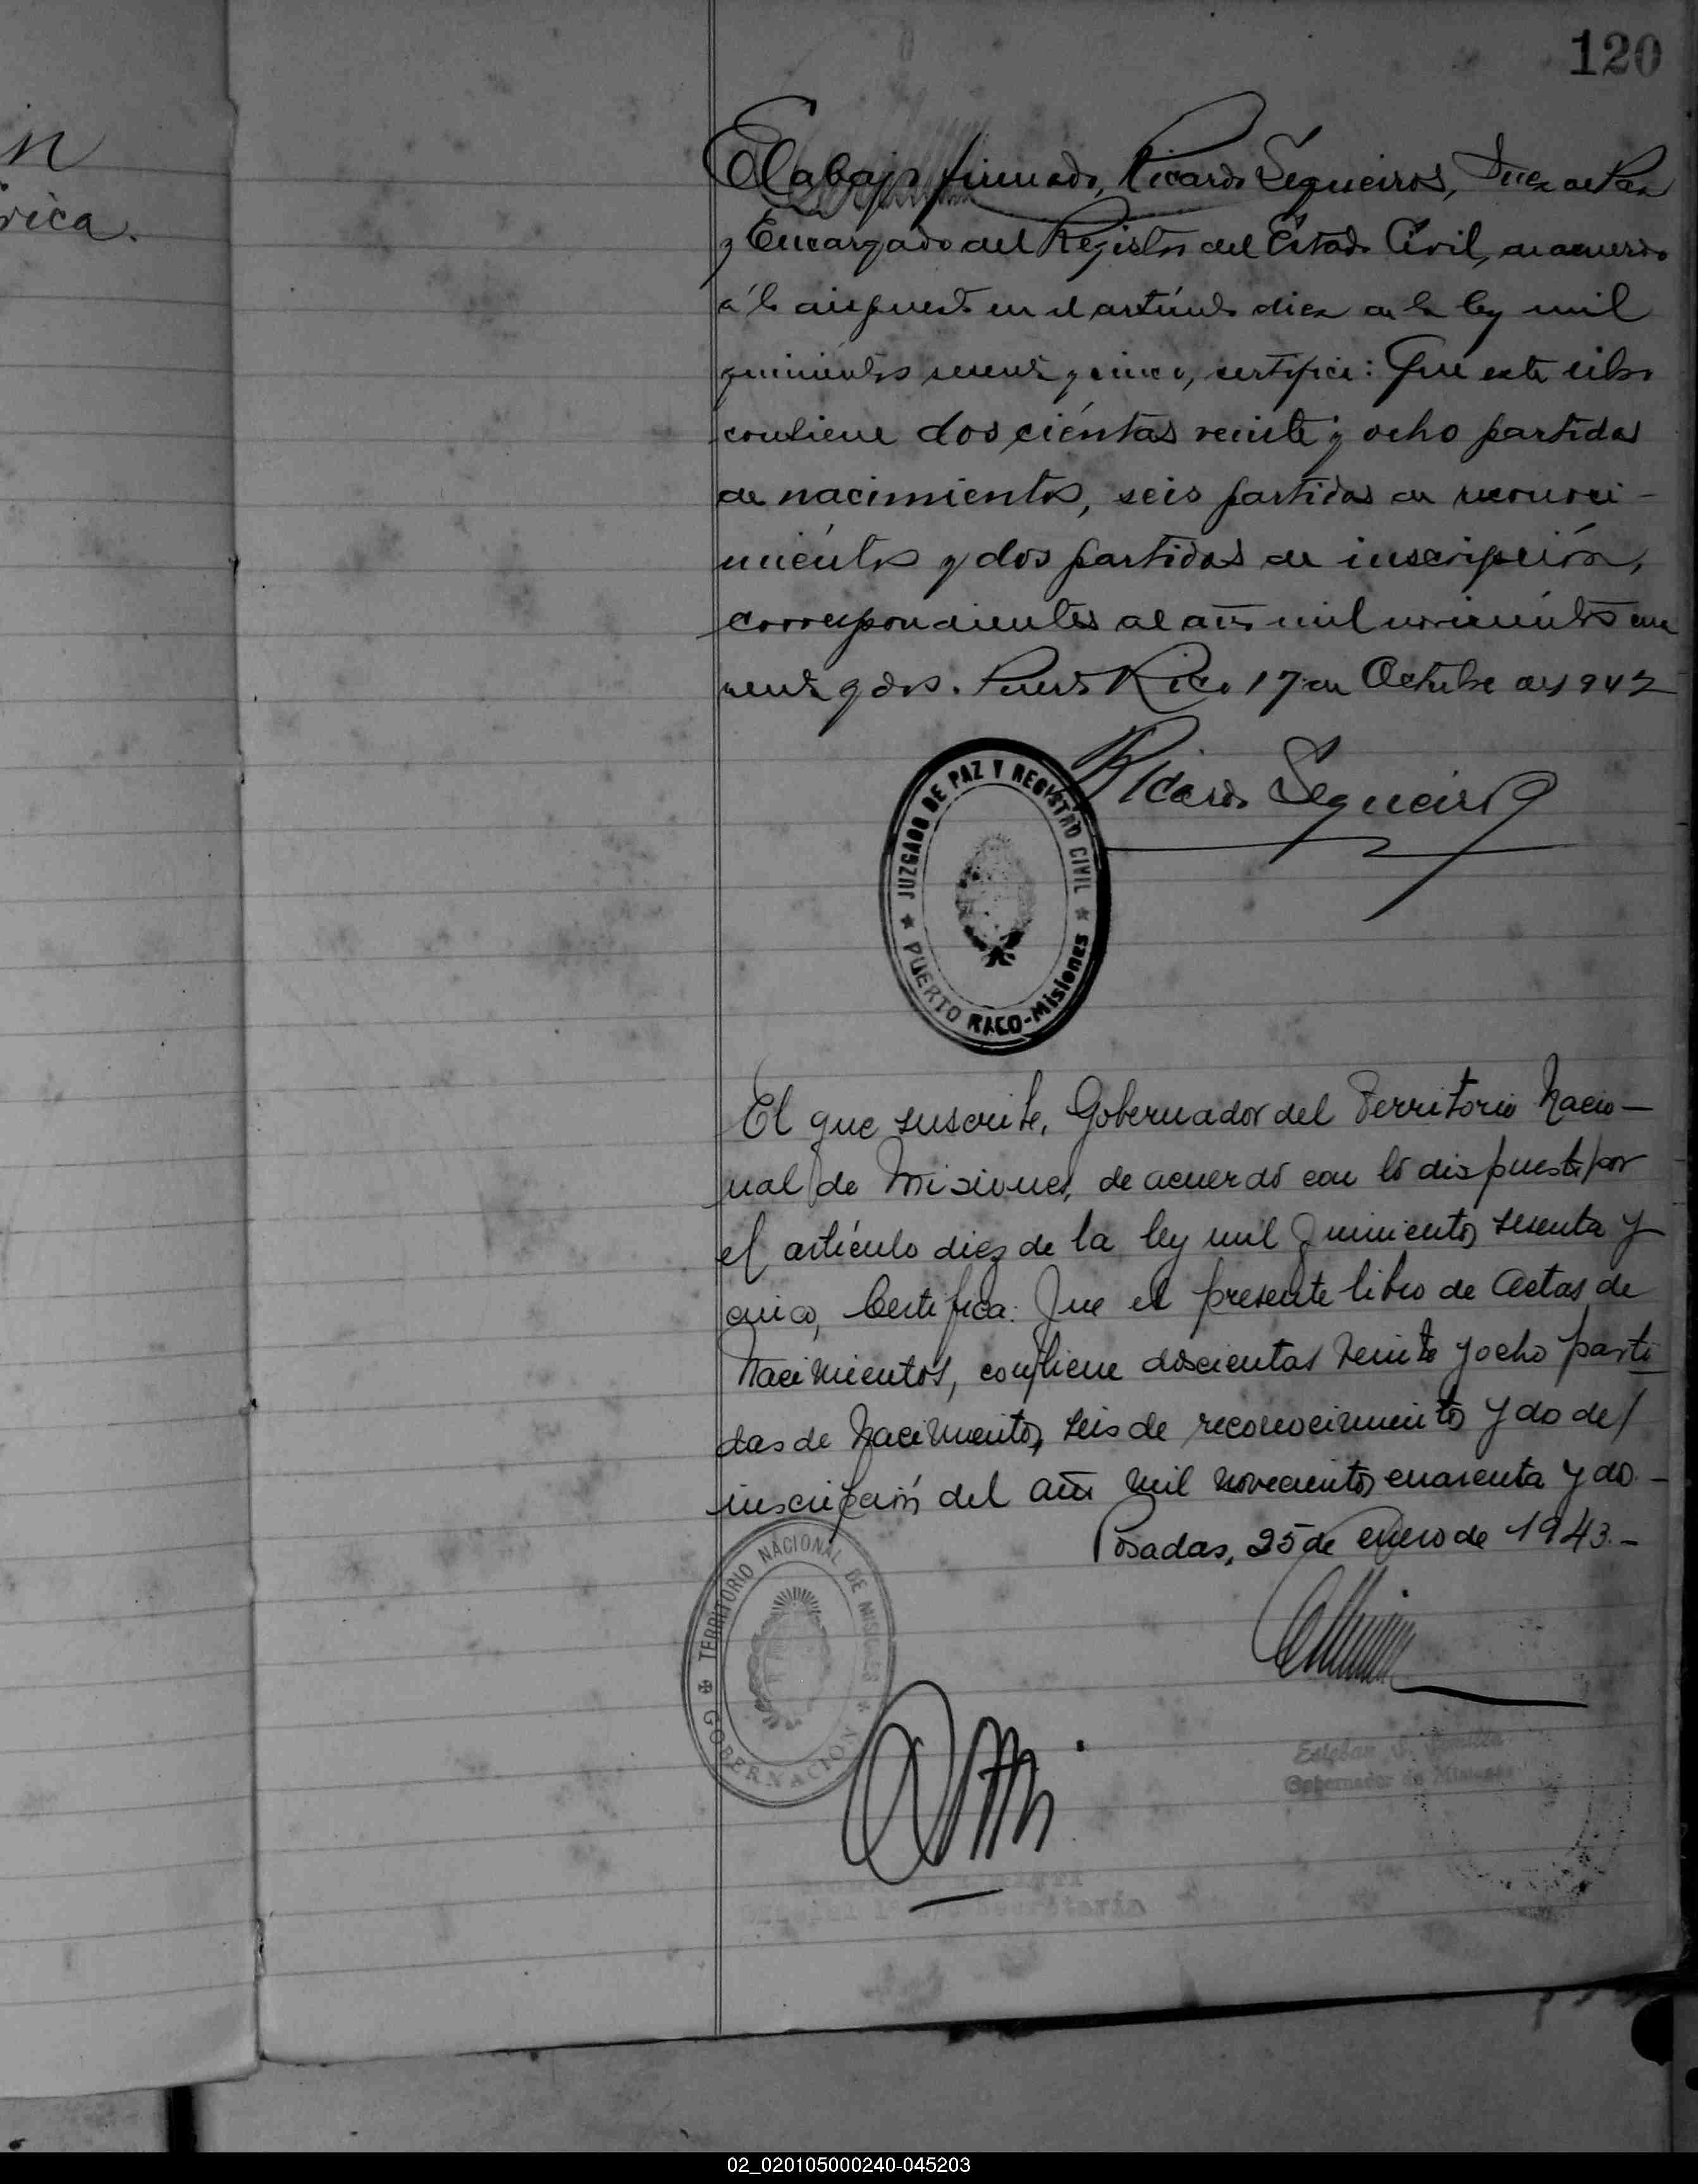 120
n
rica.
El abajo firmado, Ricardo Sequeiros, Juez de Paz
y Encargado del Registro del Estado Civil, de acuerdo
á lo dispuesto en el artículo diez de la ley mil
quinientos sesenta y cinco, certifica: Que este libro
contiene dos cientas veinte y ocho partidas
de nacimientos, seis partidas de reconoci-
miento y dos partidas de inscripción,
correspondientes al año mil novecientos cua
renta y dos. Puerto Rico 17 de Octubre de 1942
Ricardo Sequeiros
JUZGADO DE PAZ Y REGISTRO CIVIL
PUERTO RICO-Misiones
El que suscribe, Gobernador del Territorio Nacio-
nal de Misiones, de acuerdo con lo dispuesto por
el artículo diez de la ley mil quinientos sesenta y
cinco, Certifica: Que el presente libro de Actas de
Nacimientos, contiene doscientas veinte y ocho parti
das de Nacimientos, seis de reconocimientos y do de
inscripción del año mil novecientos cuarenta y do -
Posadas, 25 de enero de 1943.-
TERRITORIO NACIONAL DE MISIONES
GOBERNACION
Esteban
Gobernador de Misiones
Secretaría
02_020105000240-045203